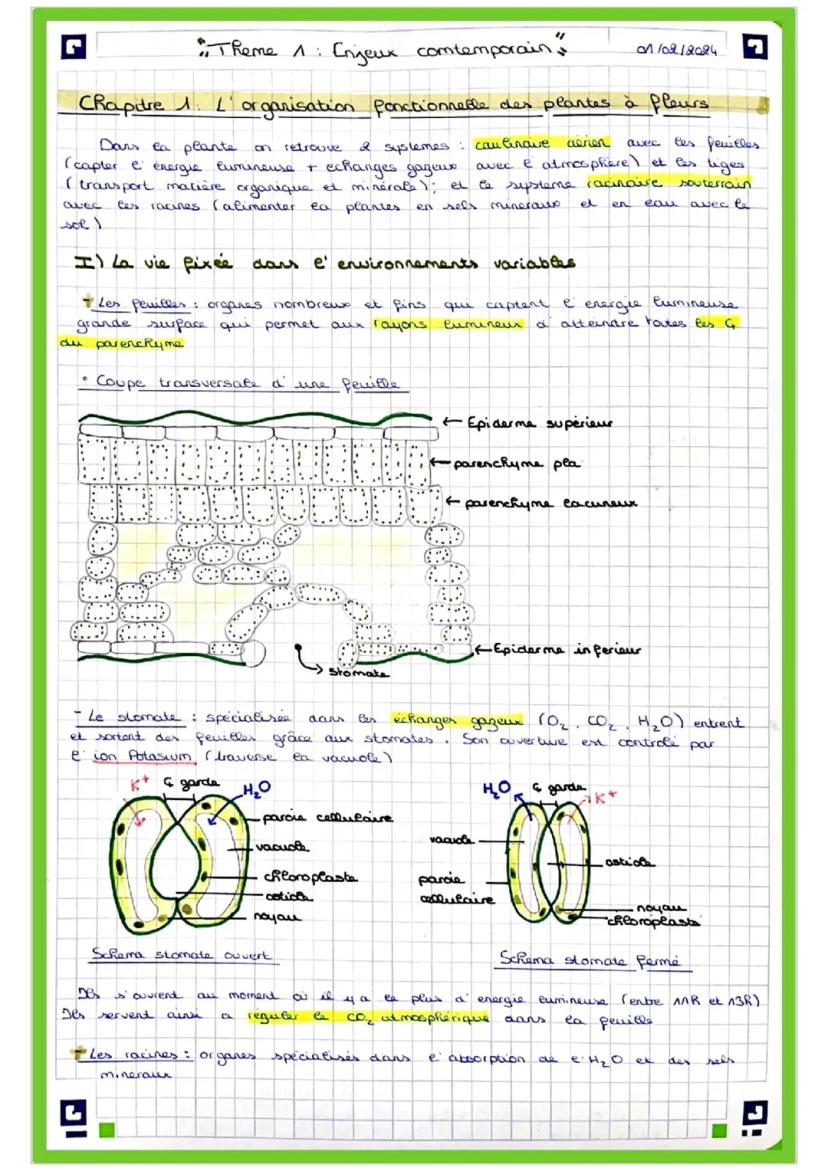 Thème 1 : Enjeux comtemporain
01/02/2024
Chapitre 1 : L'organisation fonctionnelle des plantes à fleurs
Dans la plante on retrouve 2 systemes : caulinaire aérien avec les feuilles
(capter l'énergie lumineuse + echanges gazeux avec l'atmosphère) et les tiges
(transport matière organique et minérale) ; et le système racinaire souterrain
avec les racines (alimenter la plantes en sels mineraux et en eau avec le
sol)
I) La vie fixée dans l'environnements variables
- Les feuilles : organes nombreux et fins qui captent l'energie lumineuse
grande surface qui permet aux rayons lumineux d'atteindre toutes les C
du parenchyme
• Coupe transversale d'une feuille
← Epiderme supérieur
← parenchyme pla
← parenchyme lacuneux
← Epiderme inferieur
→ stomate
- Le stomate : spécialisée dans les échanges gazeux (O₂, CO₂, H₂O) entrent
et sortent des feuilles grâce aux stomates. Son ouverture est controlé par
l'ion Potasium (traverse la vacuole)
K⁺ C garde H₂O
paroie cellulaire
vacuole
chloroplaste
ostiole
noyau
Schema stomate ouvert
H₂O C garde K⁺
vacuole
ostiole
paroie
cellulaire
noyau
chloroplaste
Schema stomate fermé
Ils s'ouvrent au moment où il y a le plus d'energie lumineuse (entre 11h et 13h)
Ils servent ainsi a réguler le CO₂ atmosphérique dans la feuille
- Les racines : organes spécialisés dans l'absorption de l'H₂O et des sels
mineraux